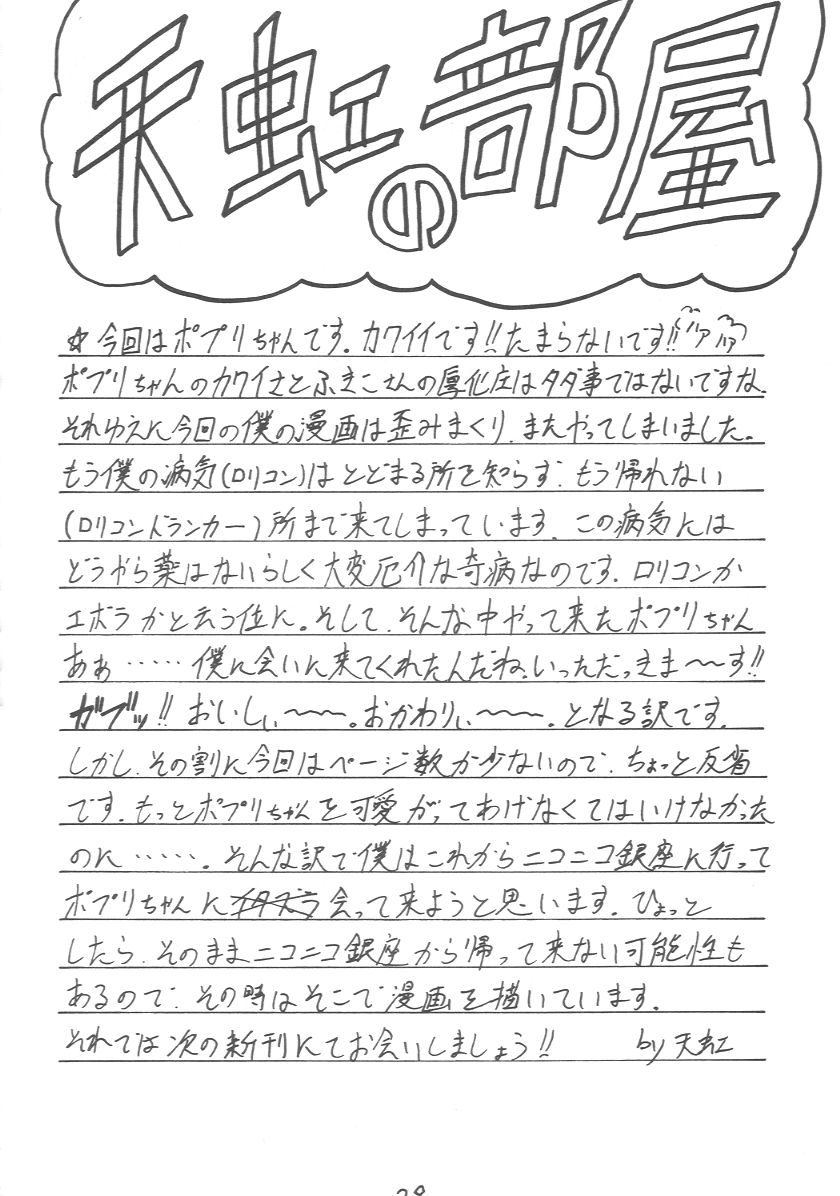 天虹の部屋
☆今回はポプリちゃんです。カワイイです!!たまらないです!!ハァハァ
ポプリちゃんのカワイさとふきこさんの厚化庄はタダ事ではないですな。
それゆえに今回の僕の漫画は歪みまくり、またやってしまいました。
もう僕の病気(ロリコン)はとどまる所を知らず、もう帰れない
(ロリコンドランカー)所まで来てしまっています。この病気には
どうやら薬はないらしく大変厄介な奇病なのです。ロリコンか
エボラかと云う位に。そして、そんな中やって来たポプリちゃん
あぁ……僕に会いに来てくれたんだね、いっただっきま〜〜す!!
ガブッ!!おいしぃ〜〜。おかわりぃ〜〜。となる訳です。
しかし、その割に今回はページ数が少ないので、ちょっと反省
です。もっとポプリちゃんを可愛がってあげなくてはいけなかった
のに……。そんな訳で僕はこれからニコニコ銀座に行って
ポプリちゃんにイタズラ会って来ようと思います。ひょっと
したら、そのままニコニコ銀座から帰って来ない可能性も
あるので、その時はそこで漫画を描いています。
それでは次の新刊にてお会いしましょう!! by天虹